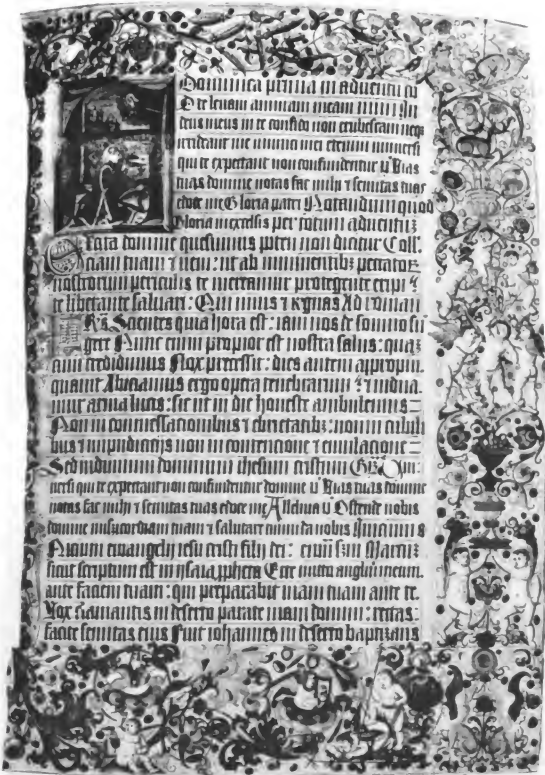 Dominica prima in adventu ad
D te levavi animam meam
deus meus in te confido non erubescam neqz
irrideant me inimici mei etenim universi
qui te expectant non confundentur v̉ Vias
tuas domine notas fac michi ⁊ semitas tuas
edoce me Gloria patri Notandum quod
Gloria in excelsis per totum adventū
non dicitur Coll.
Excita domine quesumus poten
ciam tuam ⁊ veni: ut ab imminentibz peccatoꝝ
nostrorum periculis te mereamur protegente eripi ⁊
te liberante saluari: Qui vivis ⁊ regnas Ad roman
Frēs Scientes quia hora est: iam nos de somno sur
gere Nunc enim propior est nostra salus: quaz
cum credidimus Nox precessit: dies autem appropin
quavit Abiciamus ergo opera tenebrarum ⁊ indua
mur arma lucis: sic ut in die honeste ambulemus
Non in comessacionibus ⁊ ebrietatibz: non in cubili
bus ⁊ impudicicijs non in contencione ⁊ emulacione
Sed induimini dominum ihesum cristum Gr̄ Uni
versi qui te expectant non confundentur domine v̉ Vias tuas domine
notas fac michi ⁊ semitas tuas edoce me Alleluia v̉ Ostende nobis
domine misericordiam tuam ⁊ salutare tuum da nobis Inicium s
Inicium ewangelij iesu cristi filij dei: Marcū
sicut scriptum est in ysaia ppheta Ecce mitto angelū meum.
ante faciem tuam: qui preparabit viam tuam ante te.
Vox clamantis in deserto parate viam domini: rectas
facite semitas eius Fuit iohannes in deserto baptizans